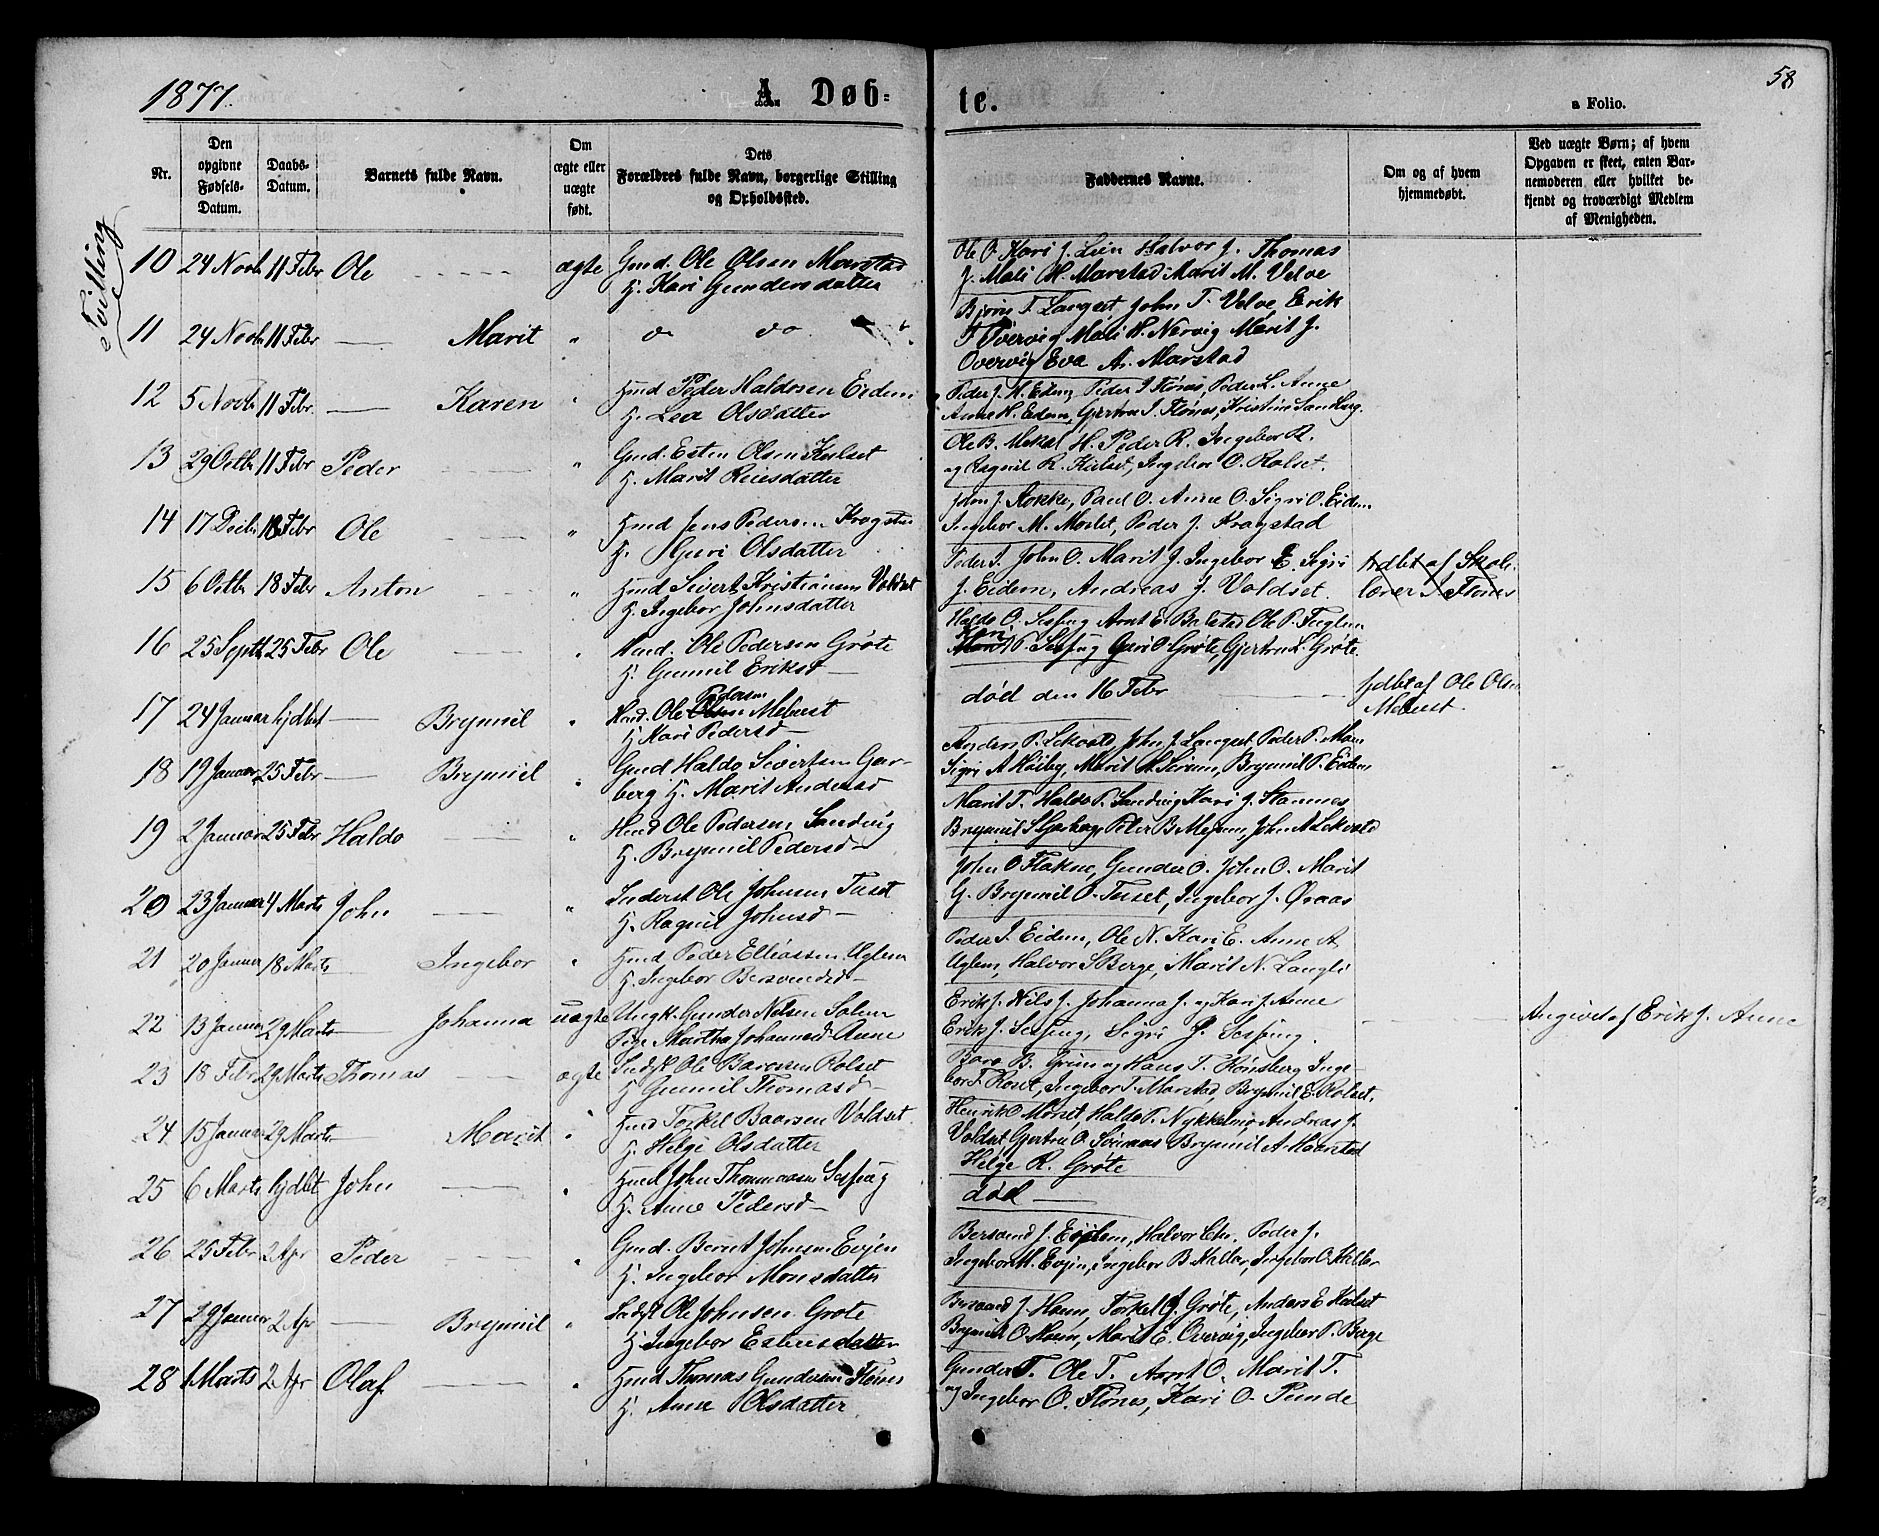 1877.
A Døb-
te.
58
a Folio.
Nr.
Den
opgivne
Fødsels-
Datum.
Daabs-
Datum.
Barnets fulde Navn.
Om
ægte eller
uægte
født.
Dets
Forældres fulde Navn, borgerlige Stilling
og Opholdssted.
Faddernes Navne.
Om og af hvem
hjemmedøbt.
Ved uægte Børn; af hvem
Opgaven er skeet, enten Bar-
nemoderen eller hvilket be-
kjendt og troværdigt Medlem
af Menigheden.
Tvilling
10 24 Novbr 11 Febr Ole ægte Gmd. Ole Olsen Marstad
H. Kari Gundersdatter
Ole O. Kari J. Lien Halvor J. Thomas
J. Mali H. Marstad Marit M. Velve
11 24 Novbr 11 Febr Marit " do do
Bjørn T. Langset, John T. Velve Erik
T. Overvig Mali H. Nervig Marit J.
Overvig Eva A. Marstad
12 5 Novbr 11 Febr. Karen " Hmd Peder Haldosen Eidem
H. Lea Olsdatter
Peder J. H. Eidem, Peder J. Flønes, Peder L. Aune
Anne H. Eidem, Gjertru J. Flønes, Kristine Sandberg
13 29 Octbr 11 Febr Peder " Gmd. Esten Olsen Kulset
H. Marit Reiersdatter
Ole B. Mokal H. Peder R. Ingebor R.
og Ragnil R. Kulset, Ingebor O. Rolset.
14 17 Decbr 18 Febr Ole " Hmd Jens Pedersen Kragstad
H. Guri Olsdatter
John J. Stokke, Paul O. Anne O. Sigri O. Eidem
Ingebor M. Moslet, Peder J. Kragstad
15 6 Octbr 18 Febr Anton " Hmd Sivert Kristiansen Voldset
H. Ingebor Johnsdatter
Peder J. John O. Marit J. Ingebor E. Sigri
J. Eidem, Andreas J. Voldset.
hdbt af Skole-
lærer J Flønes
16 25 Septbr 25 Febr Ole " Hmd. Ole Pedersen Grøte
H. Gunnil Eriksd
Haldo O. Sesseng Arnt E. Balstad Ole P. Fuglem
Kari P. Sesseng Guri O Grøte, Gjertru L. Grøte.
17 24 Januar hjdbt Brynnil " Hmd. Ole Pedersen Mebust
H Kari Pedersd
død den 16 Febr
hjdbt af Ole Olsen
Mebust.
18 19 Januar 25 Febr Brynnil " Gmd Haldo Sivertsen Gar-
berg H. Marit Andersd
Anders P. Lekvold, John J. Langset Peder P. Moen
Sigri A Høiby, Marit H. Sirum, Brynnil P. Eidem
19 2 Januar 25 Febr Haldo " Hmd Ole Pedersen Sandvig
H. Brynnil Pedersd
Marit T. Haldo P. Sandvig Kari J. Stamnes
Brynnil S Garberg Peter B Moen John A Lekvold
20 23 Januar 4 Marts John " Inderst Ole Johnsen Tuset
H. Ragnil Johnsd
John O Flakne, Gunder O. John O. Marit
G. Brynnil O. Tuset, Ingebor J. Øraas
21 20 Januar 18 Marts Ingebor " Hmd Peder Elliassen Uglem
H. Ingebor Bersvendsd
Peder J. Eidem, Ole N. Kari E. Anne A.
Uglem, Halvor S Berge, Marit N. Langli
22 13 Januar 29 Marts Johanna uægte Ungk. Gunder Nilsen Solem
Pige Martha Johannesd. Aune
Erik J. Nils J. Johanna J. og Kari J. Aune
Erik J. Sesseng, Sigri P. Sesseng.
Angivet af Erik J. Aune
23 18 Febr 29 Marts Thomas ægte Indst Ole Baresen Rolset
H Gunnil Thomasd
Baro B. Grim og Hans T. Rønsberg Inge-
bor T. Roset, Ingebor T. Marstad, Brynnil E. Rolset.
24 15 Januar 29 Marts Marit " Hmd Torkel Baarsen Voldset
H. Helge Olsdatter
Henrik O. Morset, Haldo P. Nykkelmo Andreas J.
Voldset, Gjertru O. Sørmaas Brynnil A. Maarstad
Helge R. Grøte
25 6 Marts hjdbt John " Hmd John Thommassen Sesseng
H. Anne Pedersd
død
26 25 Febr 2 Apr Peder " Gmd. Bernt Johnsen Evjen
H. Ingebor Monsdatter
Bersvend J. Evjem, Halvor Chr. Peder J.
Ingebor M. Evjen, Ingebor B. Kallar, Ingebor O. Kallar
27 29 Januar 2 Apr Brynnil " Indst Ole Johnsen Grøte
H. Ingebor Estensdatter
Bersvend J. Hoem, Torkel J. Grøte, Anders E Kulset
Brynnil O. Hoem, Marit E. Overvig, Ingebor P. Berge
28 1 Marts 2 Apr Olaf. " Hmd Thomas Gundersen Flønes
H. Anne Olsdatter
Gunder T. Ole T. Arnt O. Marit T.
og Ingebor O. Flønes, Kari O. Punde